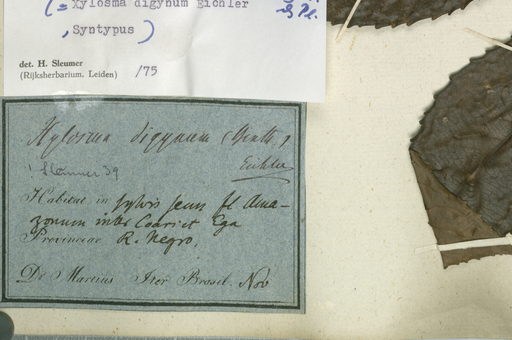 (= Xylosma digynum Eichler
, Syntypus )
det. H. Sleumer
(Rijksherbarium, Leiden) /75
Xylosma digynum (Benth.)
Eichler
! Sleumer 39
Habitat in sylvis secus fl. Ama-
zonum inter Coari et Ega
Provinciae R. Negro.
Dr Martius Iter Brasil. Nov